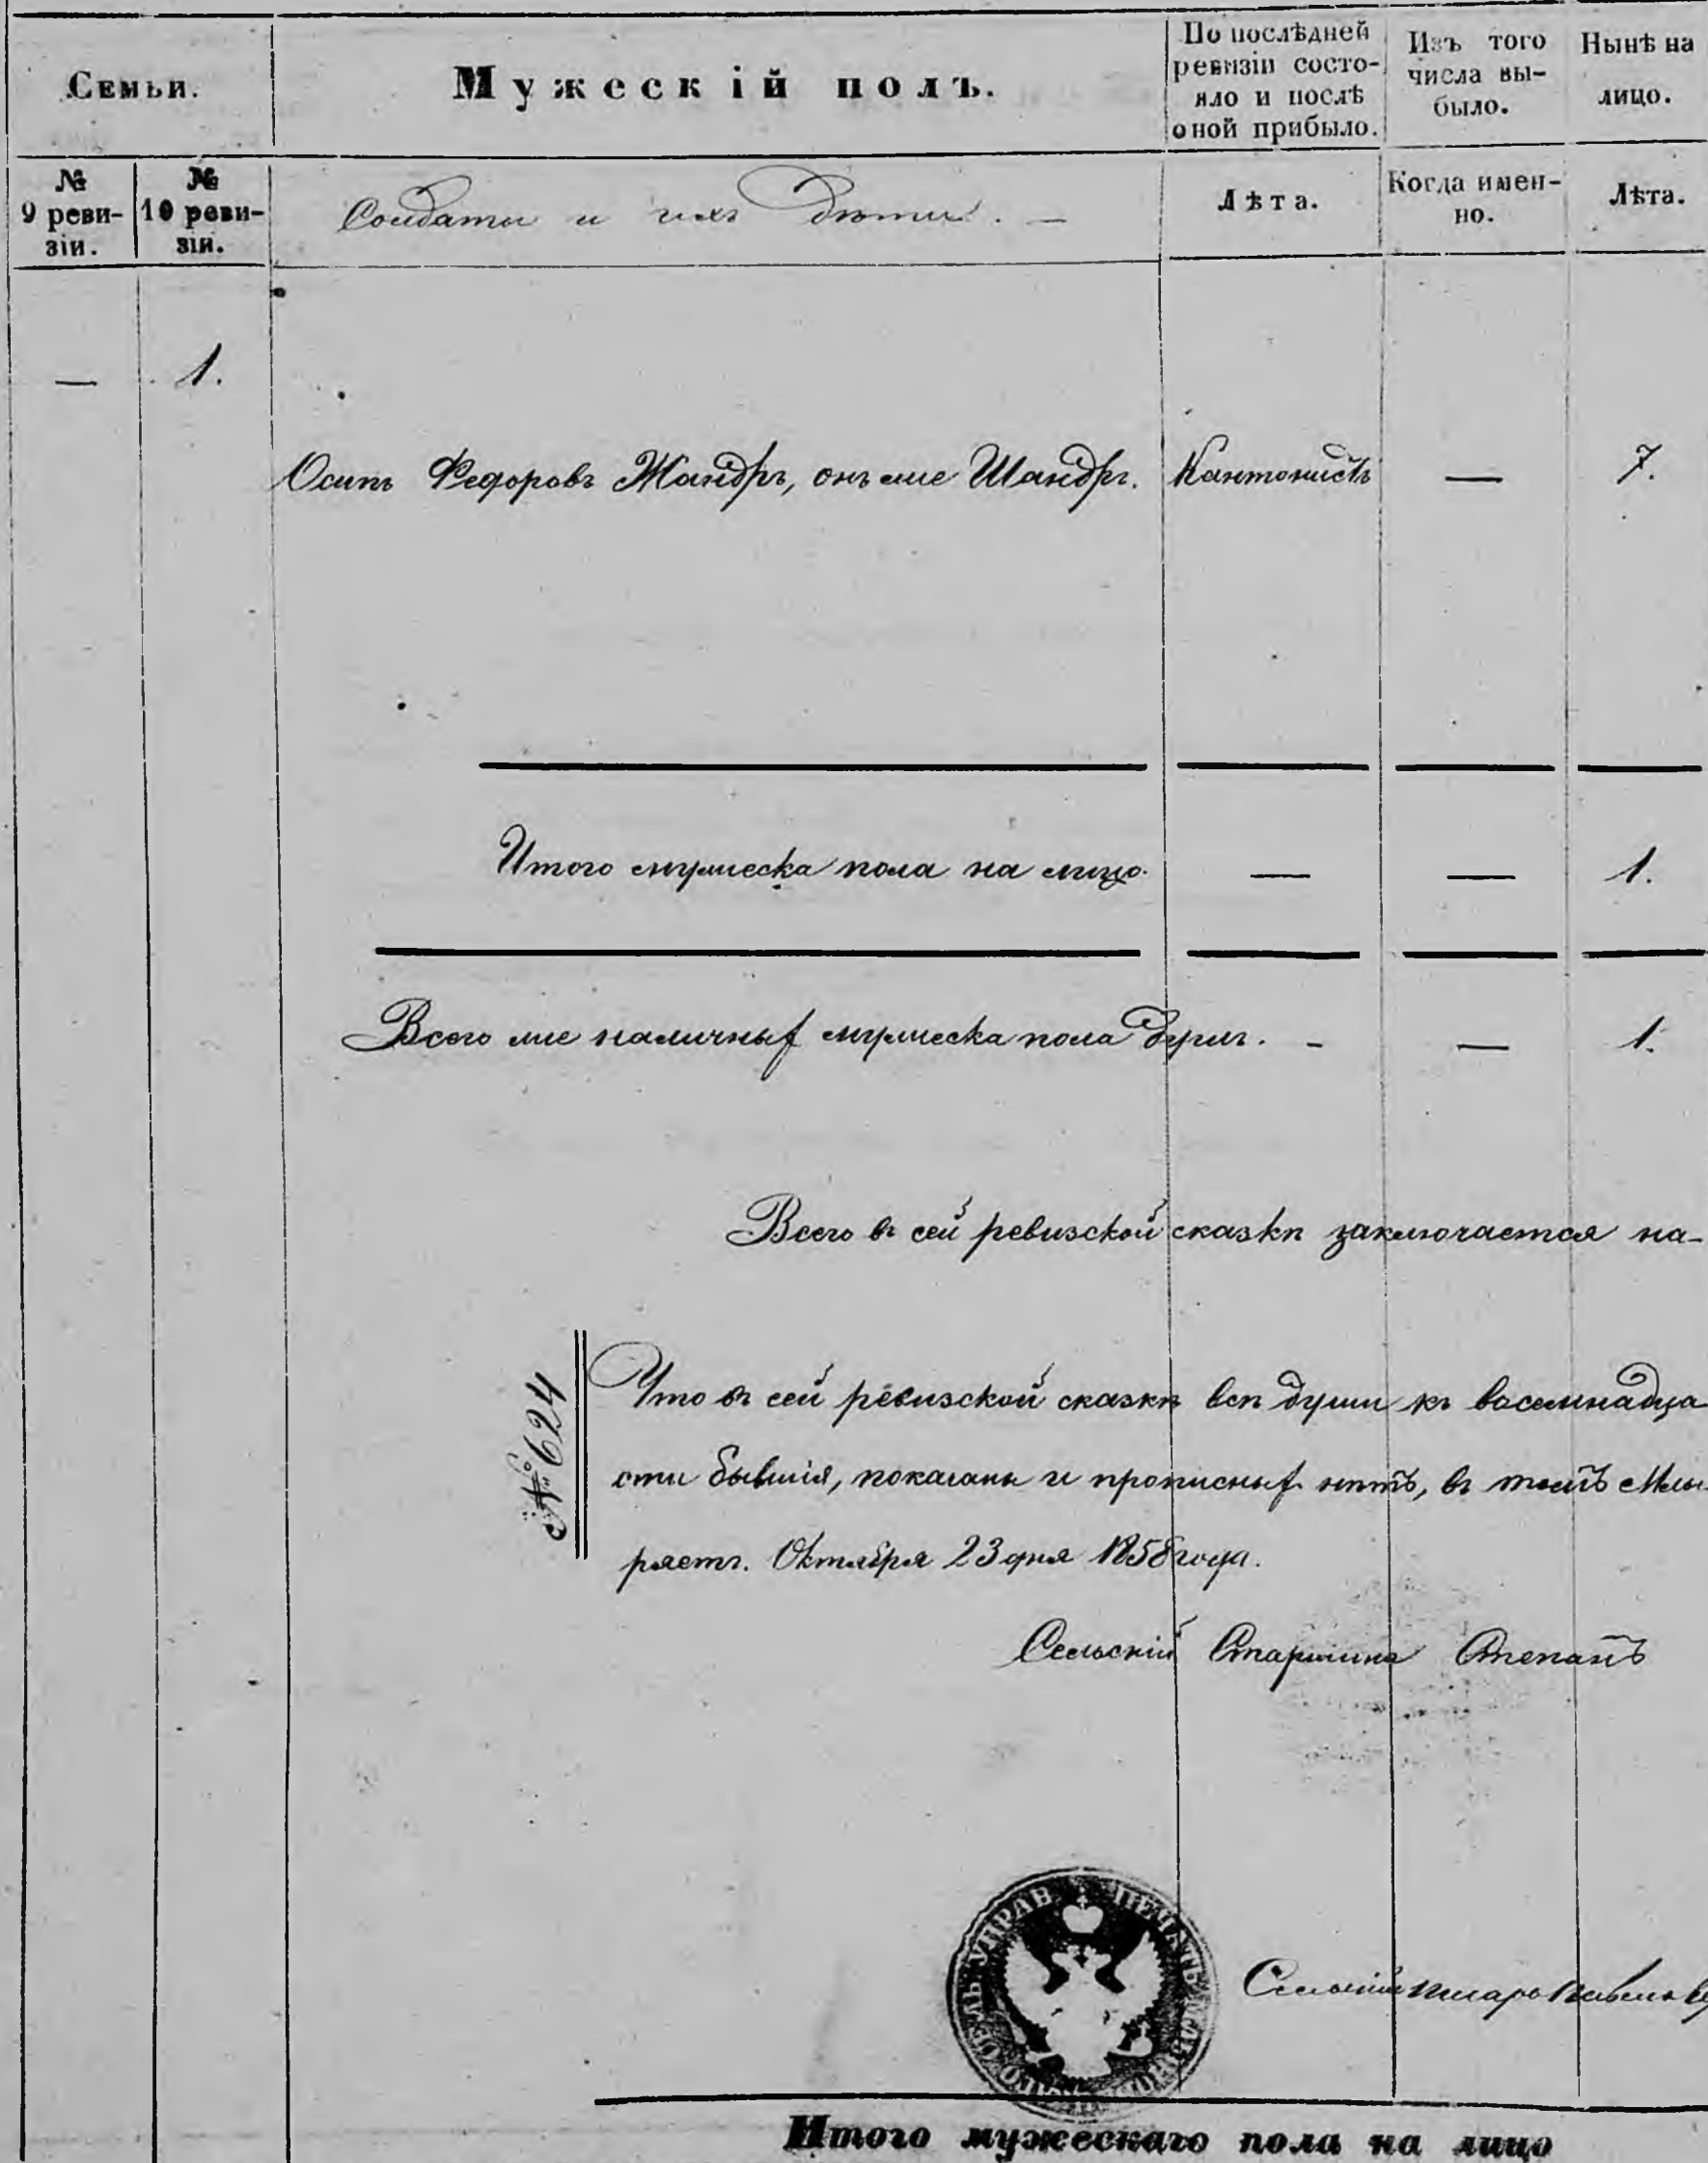 Семьи.
Мужескій полъ.
По послѣдней ревизіи состо-
яло и послѣ оной прибыло.
Изъ того числа вы-
было.
Нынѣ на лицо.
№ 9 реви-
зіи.
№ 10 реви-
зіи.
Солдаты и ихъ дѣти. —
Лѣта.
Когда имен-
но.
Лѣта.
— 1.
Осипъ Федоровъ Жандръ, онъ же Шандръ. Кантонистъ — 7.
Итого мужеска пола на лицо. — — 1.
Всего же наличныхъ мужеска пола душъ. - — 1.
Всего въ сей ревизской сказкѣ заключается на-
№ 624
Что въ сей ревизской сказкѣ всѣ души къ восемнадца
сти бывшія, показаны и прописныхъ нѣтъ, въ томъ
ряетъ. Октября 23 дня 1858 года.
Сельскій Старшина Степанъ
ПЕЧАТЬ СЕЛЬ УПРАВ
Сельскій писарь
Итого мужескаго пола на лицо